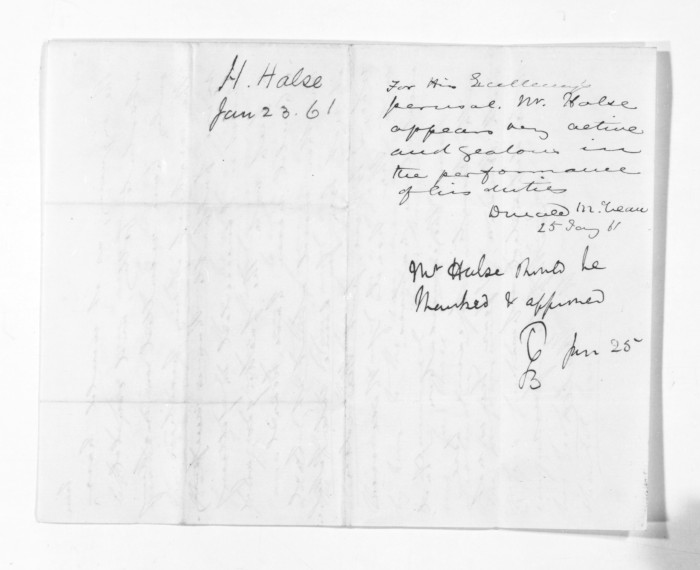 H. Halse
Jan 23. 61
For His Excellency's
perusal. Mr. Halse
appears very active
and zealous in
the performance
of his duties
Donald McLean
25 Jany 61
Mr Halse should be
thanked & approved
Jan 25
GB